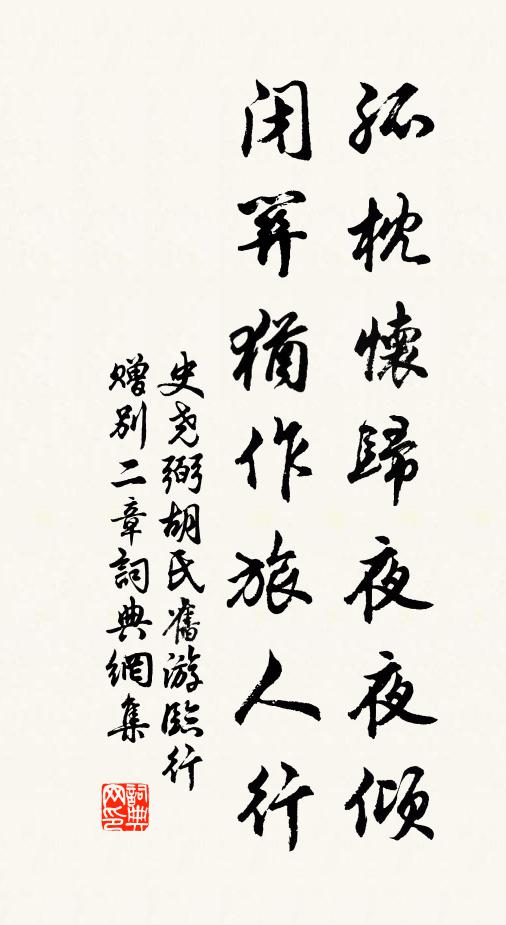 孤枕懷歸夜夜傾
闭關猶作旅人行
史尧弼胡氏舊游臨行
赠别二章詞典網集
詞典
网印